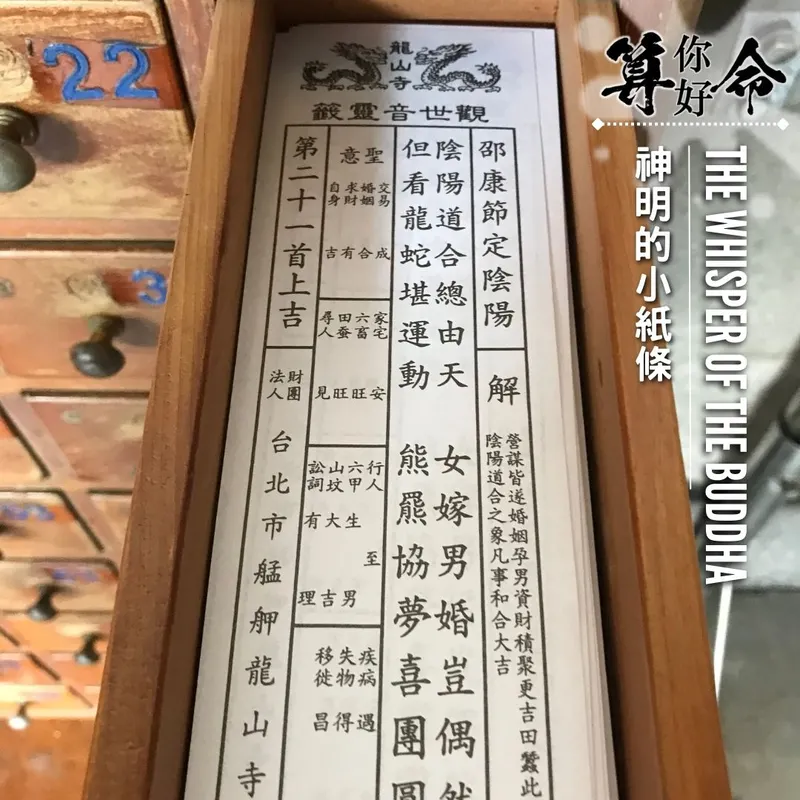 算你好命
神明的小紙條
THE WHISPER OF THE BUDDHA
22
3
龍山寺
觀世音靈籤
邵康節定陰陽
解
營謀皆遂婚姻孕男資財積聚更吉田蠶此
陰陽道合之象凡事和合大吉
陰陽道合總由天 女嫁男婚豈偶然
但看龍蛇堪運動 熊羆協夢喜團圓
聖意
交易成
婚姻合
求財有
自身吉
家宅安
六畜旺
田蚕旺
尋人見
行人至
六甲生男
山坟大吉
訟詞有理
疾病遇
失物得
移徙昌
第二十一首上吉
財團法人
台北市艋舺龍山寺